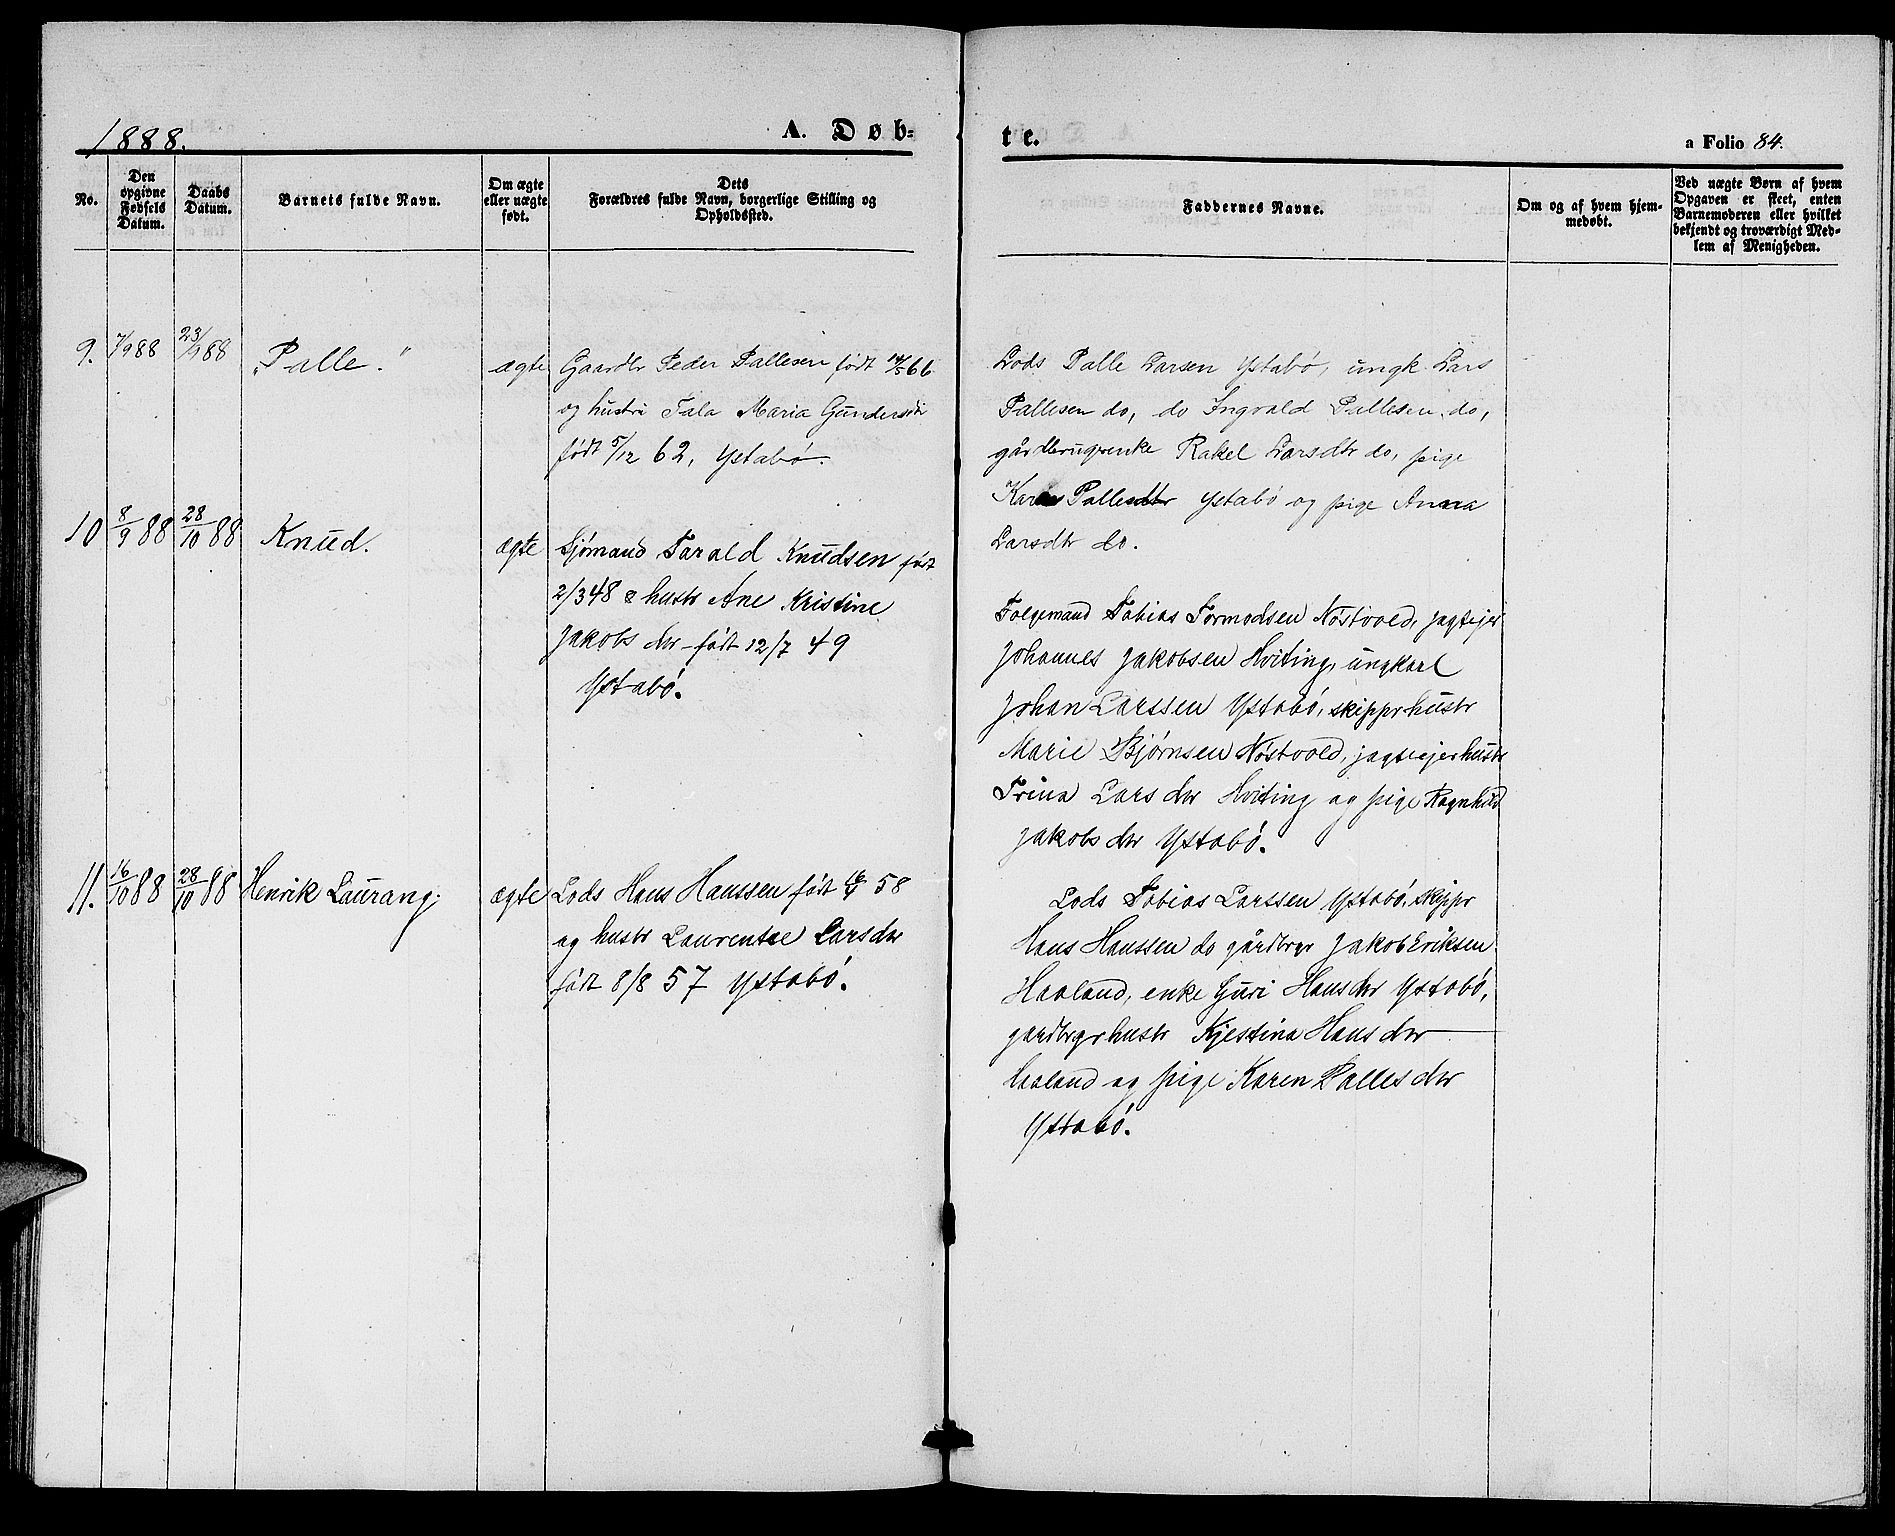 1888.
A. Døb=
te.
a Folio 84.
No.
Den opgivne Fødsels Datum.
Daabs Datum.
Barnets fulde Navn.
Om ægte eller uægte født.
Dets Forældres fulde Navn, borgerlige Stilling og Opholdssted.
Faddernes Navne.
Om og af hvem hjem=medøbt.
Ved uægte Børn af hvem Opgaven er skeet, enten Barnemoderen eller hvilket bekjendt og troværdigt Med=lem af Menigheden.
9. 7/9 88 23/9 88 "Palle." ægte Gaardbr Peder Pallesen født 14/5 66
og hustru Tala Maria Gundersdtr
født 5/12 62, Ystabø.
Lods Palle Larsen Ystabø, ungk. Lars
Pallesen do, do Ingvald Pallesen do,
gårdbrugrenke Rakel Larsdtr do, pige
Karen Pallesdtr Ystabø og pige Anna
Larsdtr do.
10 8/9 88 28/10 88 Knud. ægte Sjømand Tarald Knudsen født
2/3 48 & hustr Ane Kristine
Jakobs dtr født 12/7 49
Ystabø.
Folgemand Tobias Tormodsen Nøstvold, jagtejer
Johannes Jakobsen Hviting, ungkarl
Johan Larssen Ystabø, skipprhustr
Marie Bjørnsen Nøstvold, jagtejerhustr
Trina Lars dtr Hviting og pige Ragnhild
Jakobs dtr Ystabø.
11. 16/10 88 28/10 88 Henrik Laurang. ægte Lods Hans Hanssen født 58
og hustr Laurentse Larsdtr
født 8/8 57 Ystabø.
Lods Tobias Larssen Ystabø, skippr
Hans Hanssen do gårdbrgr Jakob Eriksen
Haaland, enke Guri Hansdtr Ystabø,
gardbrgrhustr Kjestina Hans dtr
Haaland og pige Karen Palles dtr
Ystabø.